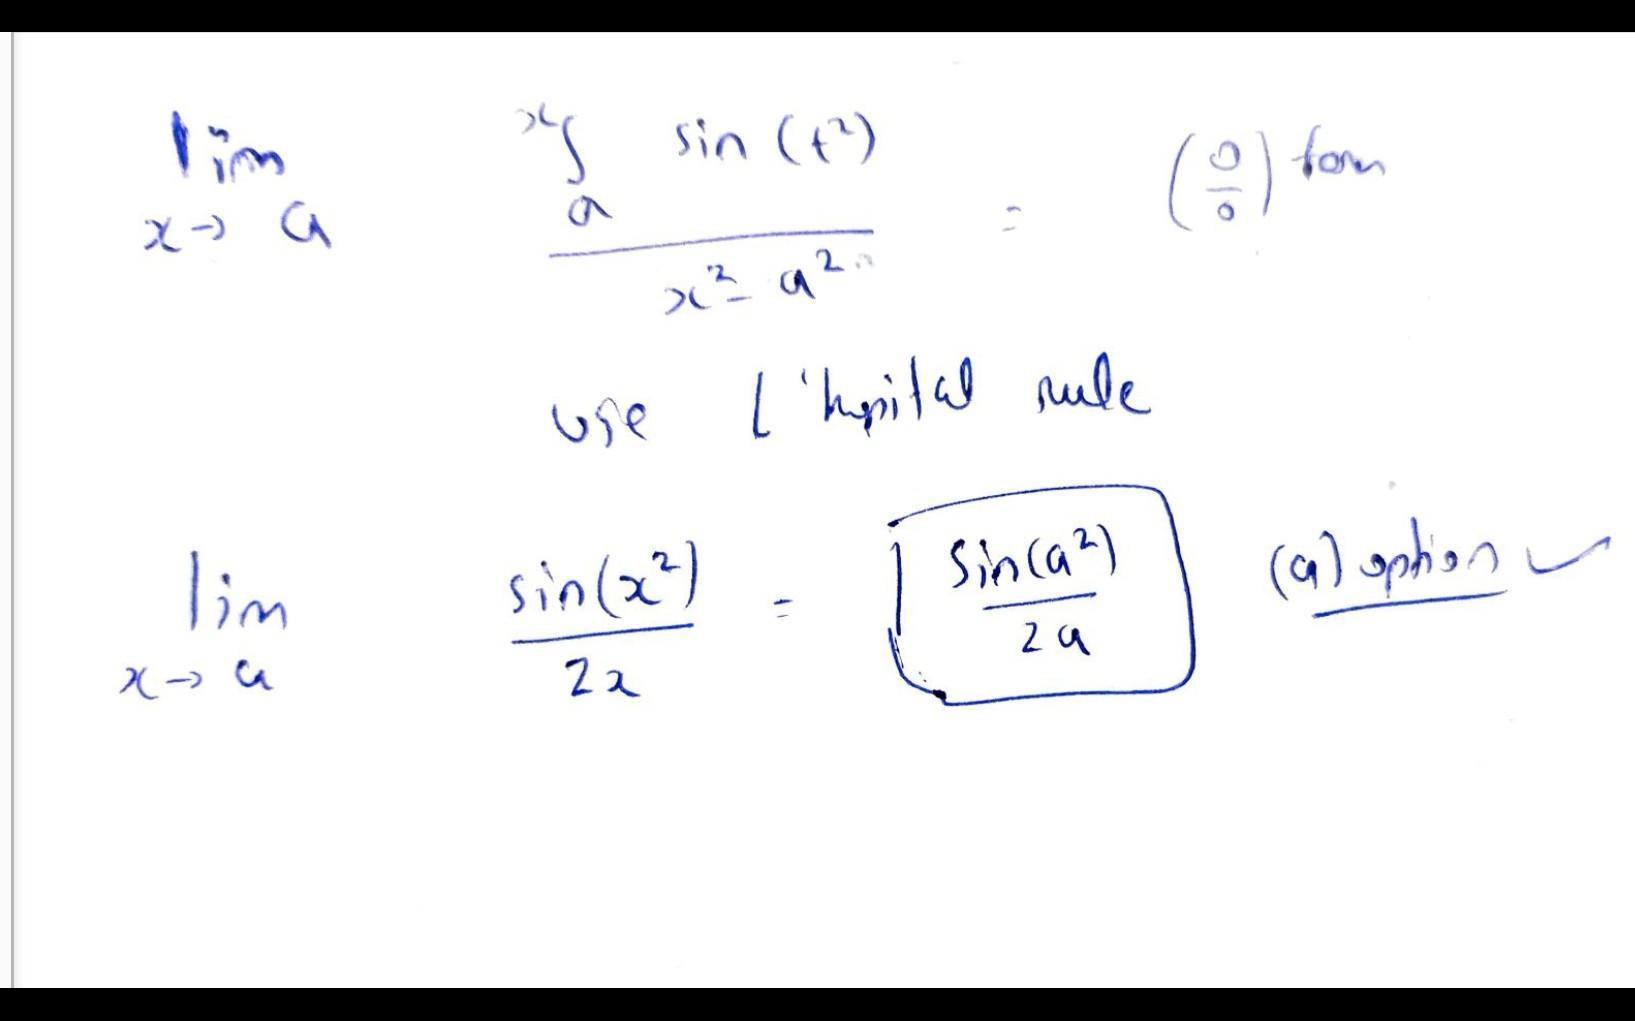 lim x→a ∫ₐˣ sin(t²) / x² - a² = (0/0) form
use L'hopital rule
lim x→a sin(x²) / 2x = sin(a²) / 2a (a) option ✓